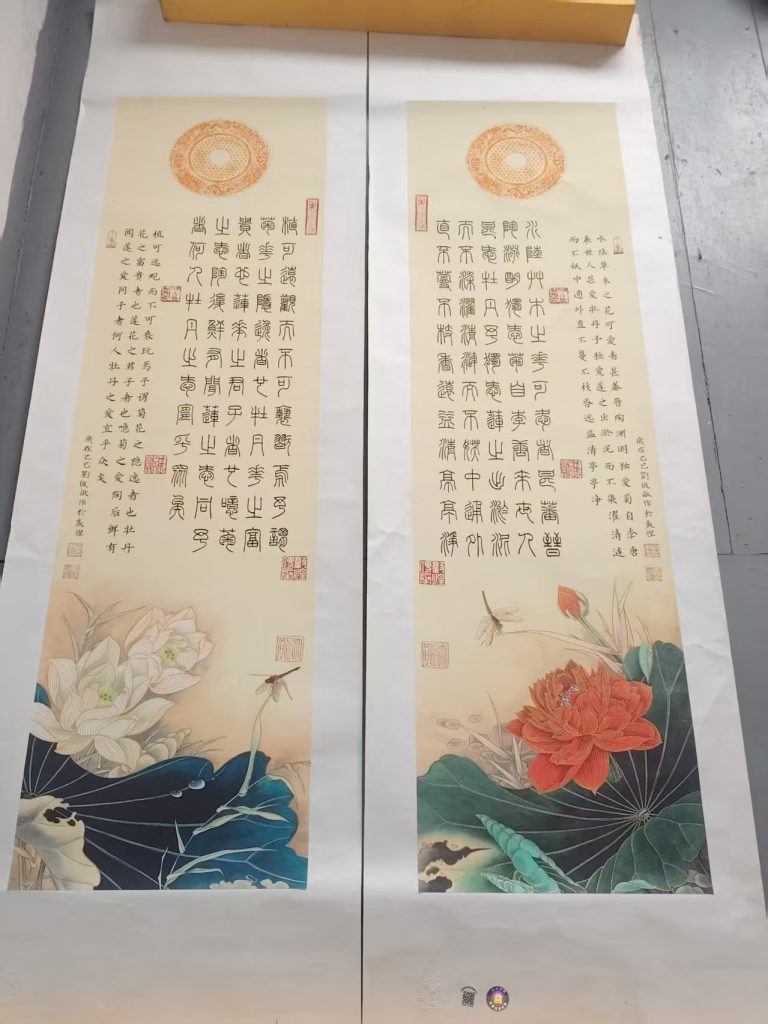 水陸艸木之華可愛者甚蕃晉
陶淵明獨愛菊自李唐來世人
甚愛牡丹予獨愛蓮之出淤泥
而不染濯清漣而不妖中通外
直不蔓不枝香遠益清亭亭淨
水陆草木之花可爱者甚蕃晋陶渊明独爱菊自李唐
来世人甚爱牡丹予独爱莲之出淤泥而不染濯清涟
而不妖中通外直不蔓不枝香远益清亭亭净
歲在乙巳劉俊作於敦煌
植可遠觀而不可褻翫焉予謂
菊華之隱逸者也牡丹華之富
貴者也蓮華之君子者也噫菊
之愛陶後鮮有聞蓮之愛同予
者何人牡丹之愛宜乎眾矣
植可远观而不可亵玩焉予谓菊花之隐逸者也牡丹
花之富贵者也莲花之君子者也噫菊之爱陶后鲜有
闻莲之爱同予者何人牡丹之爱宜乎众矣
歲在乙巳劉俊作於敦煌